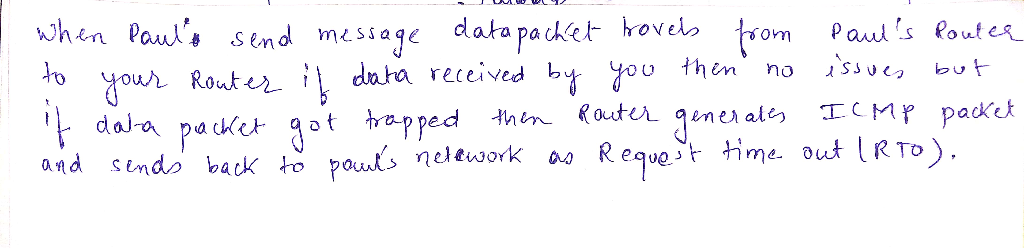 When Paul's send message datapacket travels from Paul's Router
to your Router if data received by you then no issues but
if data packet got trapped then Router generates ICMP packet
and sends back to paul's netework as Request time out (RTO).